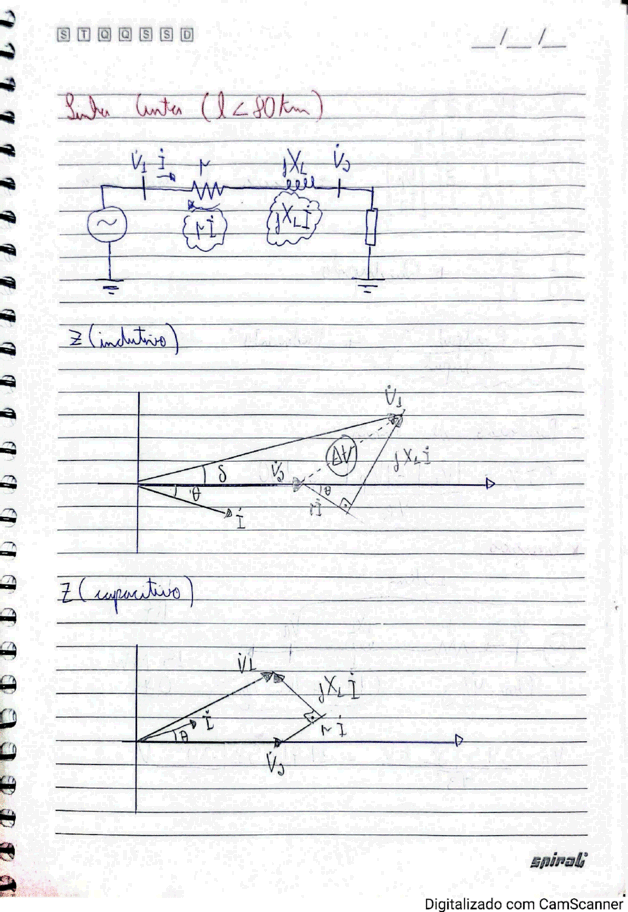 S T Q Q S S D
__/__/__
Linhas Curtas (l < 80 km)
V̇1 İ r jXL V̇2
rİ jXLİ
Z (indutivo)
V̇1
ΔV
jXLİ
δ V̇2
θ θ
rİ
İ
Z (capacitivo)
V̇1
jXLİ
İ
rİ
θ
V̇2
spiral
Digitalizado com CamScanner